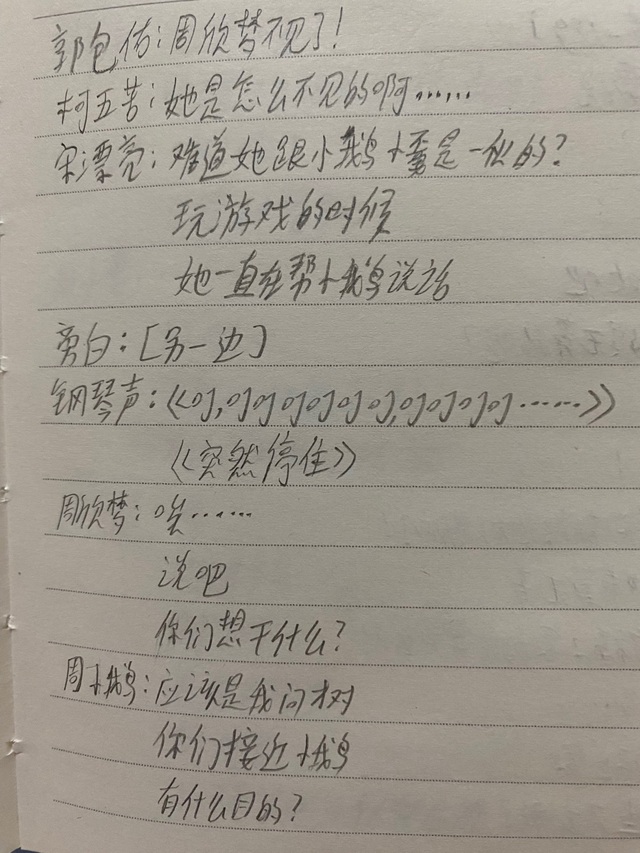 郭包佑：周欣梦不见了！
柯五苦：她是怎么不见的啊……
宋漂亮：难道她跟小鹅小蛋是一伙的？
玩游戏的时候
她一直在帮小鹅说话
旁白：[另一边]
钢琴声：《叮,叮叮叮叮叮叮,叮叮叮叮……》
《突然停住》
周欣梦：唉……
说吧
你们想干什么？
周小鹅：应该是我问才对
你们接近小鹅
有什么目的？